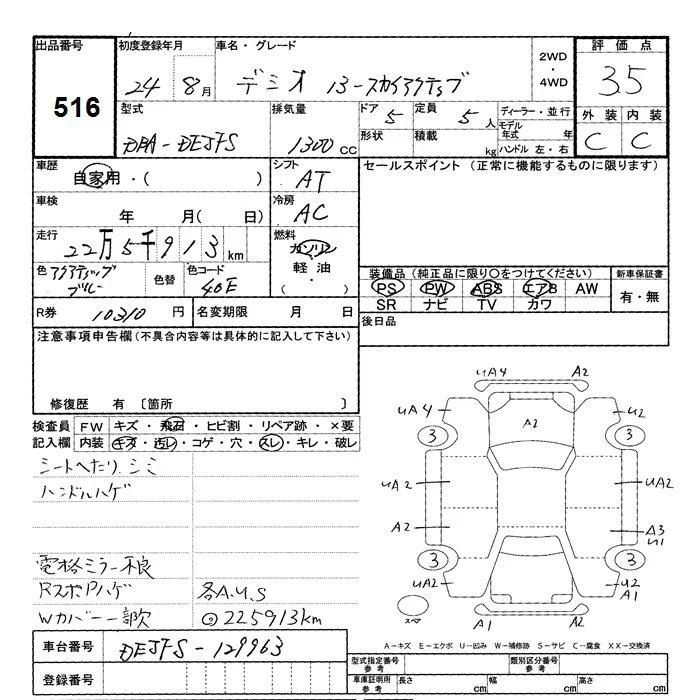 出品番号
516
初度登録年月
24 8月
車名・グレード
デミオ 13-スカイアクティブ
2WD
・
4WD
評価点
3.5
型式
DBA-DEJFS
排気量
1300 CC
ドア 5
形状
定員 5 人
積載 kg
ディーラー・並行
モデル年式 年
ハンドル 左・右
外装 内装
C C
車歴
自家用・( )
シフト
AT
セールスポイント (正常に機能するものに限ります)
車検
年 月( 日)
冷房
AC
走行
22万5千913km
燃料
ガソリン
・
軽油
・
( )
色 アクアティックブルー
色替
色コード
40E
装備品(純正品に限り○をつけてください)
PS PW ABS エアB AW
SR ナビ TV カワ
新車保証書
有・無
R券 10310 円
名変期限 月 日
後日品
注意事項申告欄(不具合内容等は具体的に記入して下さい)
修復歴 有 〔箇所 〕
検査員記入欄
FW キズ・飛石・ヒビ割・リペア跡・×要
内装 キズ・汚レ・コゲ・穴・スレ・キレ・破レ
シートヘたり、シミ
ハンドルハゲ
電格ミラー不良
RスポPハゲ
各A.U.S
Wカバー一部欠
◎225913km
車台番号
DEJFS-129963
登録番号
UA4 A2
UA4 A2 U2
3 3
UA2 UA2
A2 A3
U1
3 3
UA2 U2
A1
スペア A1 A2
A-キズ E-エクボ U-凹み W-補修跡 S-サビ C-腐食 XX-交換済
型式指定番号
参考
類別区分番号
参考
車庫証明用
参考
長さ cm
幅 cm
高さ cm